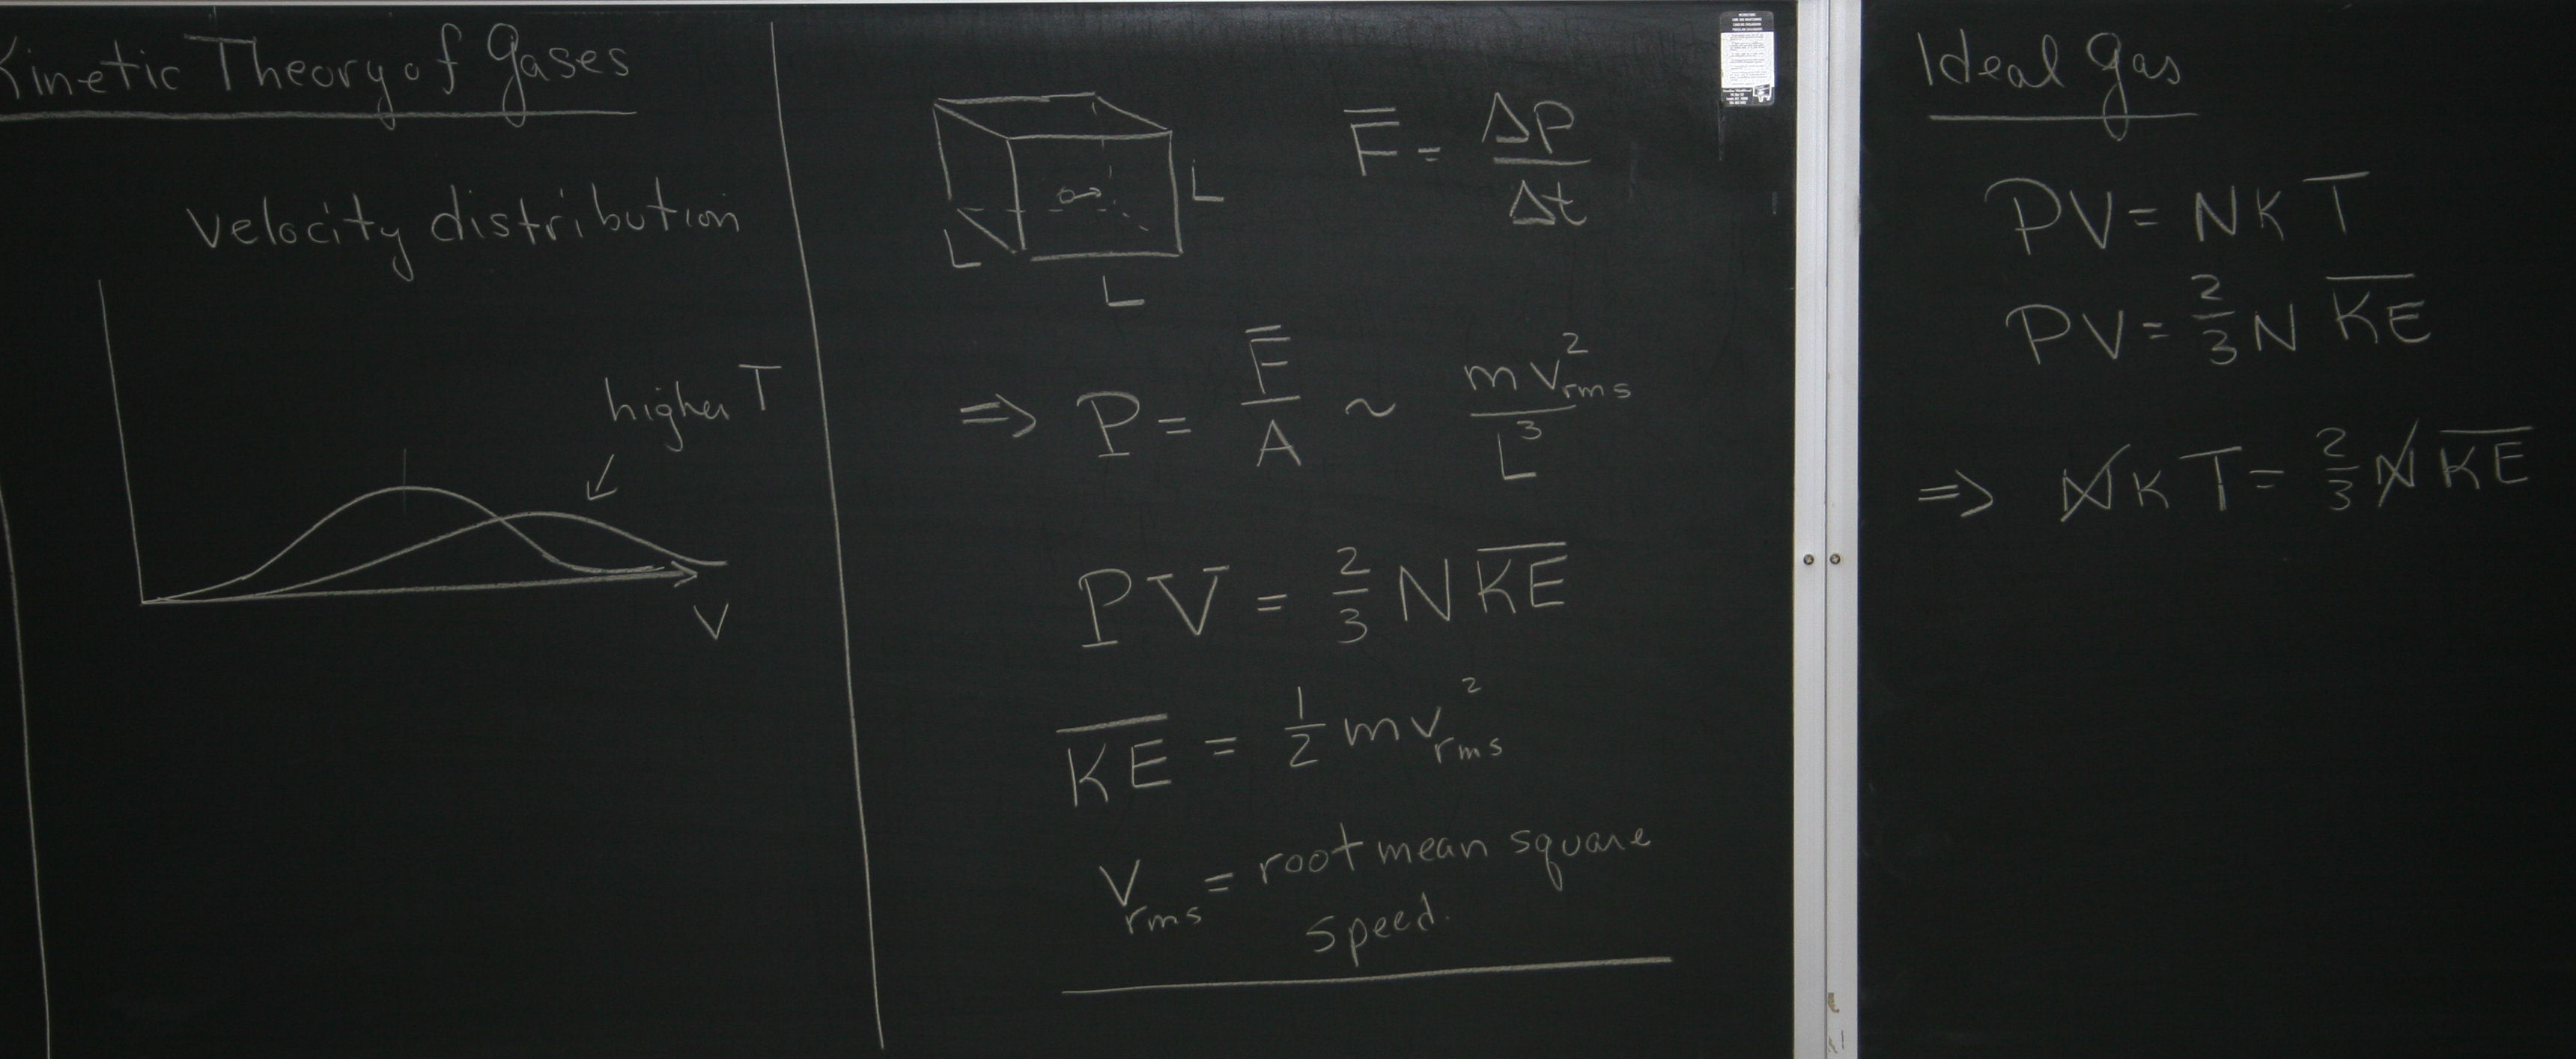 Kinetic Theory of Gases
velocity distribution
higher T
V
L
L
L
F̅ = ΔP/Δt
⇒ P = F̅/A ~ mv²rms/L³
PV = 2/3 N K̅E̅
K̅E̅ = 1/2 mv²rms
Vrms = root mean square
speed.
Ideal Gas
PV = NKT
PV = 2/3 N K̅E̅
⇒ NKT = 2/3 N K̅E̅